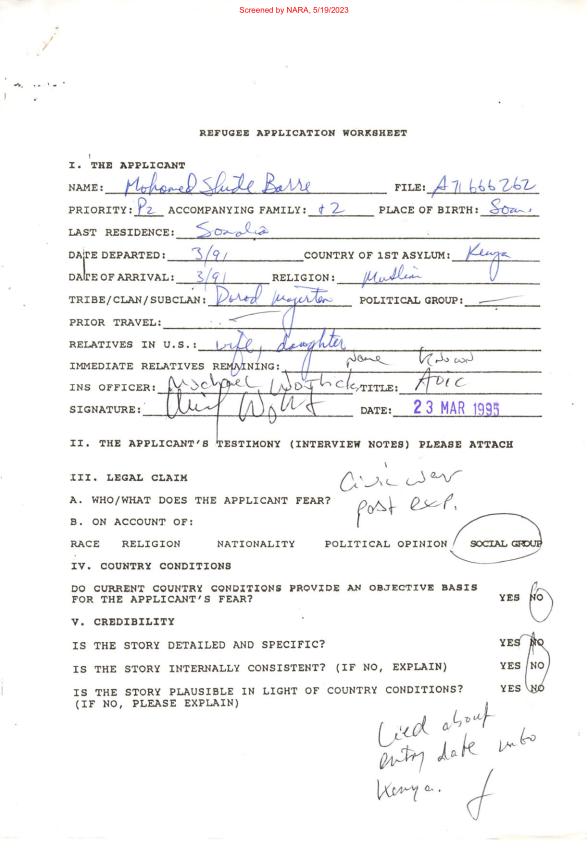 Screened by NARA, 5/19/2023
REFUGEE APPLICATION WORKSHEET
I. THE APPLICANT
NAME: Mohomed Shide Barre FILE: A71 666 262
PRIORITY: P2 ACCOMPANYING FAMILY: +2 PLACE OF BIRTH: Som.
LAST RESIDENCE: Somalia
DATE DEPARTED: 3/91 COUNTRY OF 1ST ASYLUM: Kenya
DATE OF ARRIVAL: 3/91 RELIGION: Muslim
TRIBE/CLAN/SUBCLAN: Darod Majerten POLITICAL GROUP: —
PRIOR TRAVEL: —
RELATIVES IN U.S.: wife, daughter
IMMEDIATE RELATIVES REMAINING: None Known
INS OFFICER: Michael TITLE: AOIC
SIGNATURE: DATE: 23 MAR 1995
II. THE APPLICANT'S TESTIMONY (INTERVIEW NOTES) PLEASE ATTACH
III. LEGAL CLAIM
Civic war
A. WHO/WHAT DOES THE APPLICANT FEAR? post exp.
B. ON ACCOUNT OF:
RACE RELIGION NATIONALITY POLITICAL OPINION SOCIAL GROUP
IV. COUNTRY CONDITIONS
DO CURRENT COUNTRY CONDITIONS PROVIDE AN OBJECTIVE BASIS
FOR THE APPLICANT'S FEAR? YES NO
V. CREDIBILITY
IS THE STORY DETAILED AND SPECIFIC? YES NO
IS THE STORY INTERNALLY CONSISTENT? (IF NO, EXPLAIN) YES NO
IS THE STORY PLAUSIBLE IN LIGHT OF COUNTRY CONDITIONS? YES NO
(IF NO, PLEASE EXPLAIN)
Lied about
entry date into
Kenya.